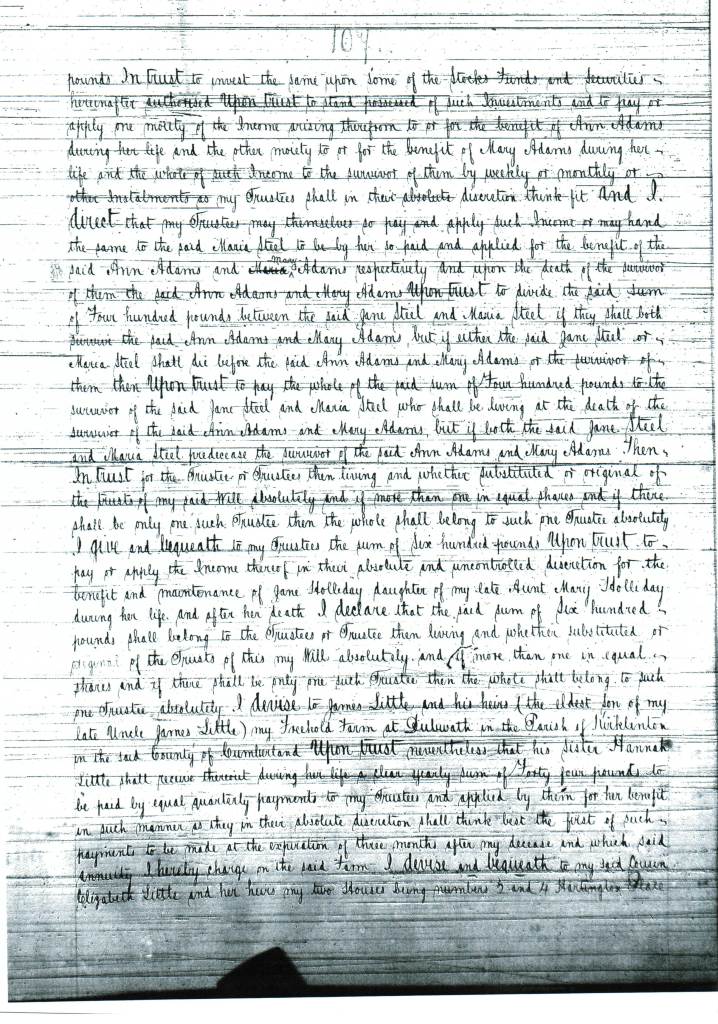 107.
pounds In trust to invest the same upon some of the Stocks Funds and Securities
hereinafter authorised Upon trust to stand possessed of such Investments and to pay or
apply one moiety of the Income arising therefrom to or for the benefit of Ann Adams
during her life and the other moiety to or for the benefit of Mary Adams during her
life and the whole of such Income to the survivor of them by weekly or monthly or
other Instalments as my Trustees shall in their absolute discretion think fit And I
direct that my Trustees may themselves so pay and apply such Income or may hand
the same to the said Maria Steel to be by her so paid and applied for the benefit of the
said Ann Adams and Maria Mary Adams respectively and upon the death of the survivor
of them the said Ann Adams and Mary Adams Upon trust to divide the said sum
of Four hundred pounds between the said Jane Steel and Maria Steel if they shall both
survive the said Ann Adams and Mary Adams but if either the said Jane Steel or
Maria Steel shall die before the said Ann Adams and Mary Adams or the survivor of
them then Upon trust to pay the whole of the said sum of Four hundred pounds to the
survivor of the said Jane Steel and Maria Steel who shall be living at the death of the
survivor of the said Ann Adams and Mary Adams, but if both the said Jane Steel
and Maria Steel predecease the survivor of the said Ann Adams and Mary Adams Then
In trust for the Trustee or Trustees then living and whether substituted or original of
the trusts of my said Will absolutely and if more than one in equal shares and if there
shall be only one such Trustee then the whole shall belong to such one Trustee absolutely
I give and bequeath to my Trustees the sum of Six hundred pounds Upon trust to
pay or apply the Income thereof in their absolute and uncontrolled discretion for the
benefit and maintenance of Jane Holliday daughter of my late Aunt Mary Holliday
during her life and after her death I declare that the said sum of Six hundred
pounds shall belong to the Trustees or Trustee then living and whether substituted or
original of the Trusts of this my Will absolutely and if more than one in equal
shares and if there shall be only one such Trustee then the whole shall belong to such
one Trustee absolutely I devise to James Little and his heirs (the eldest son of my
late Uncle James Little) my Freehold Farm at Dulwath in the Parish of Kirklinton
in the said County of Cumberland Upon trust nevertheless that his Sister Hannah
Little shall receive thereout during her life a clear yearly sum of Forty four pounds to
be paid by equal quarterly payments to my Trustees and applied by them for her benefit
in such manner as they in their absolute discretion shall think best the first of such
payments to be made at the expiration of three months after my decease and which said
annuity I hereby charge on the said Farm I devise and bequeath to my said Cousin
Elizabeth Little and her heirs my two Houses being numbers 3 and 4 Hartington Place